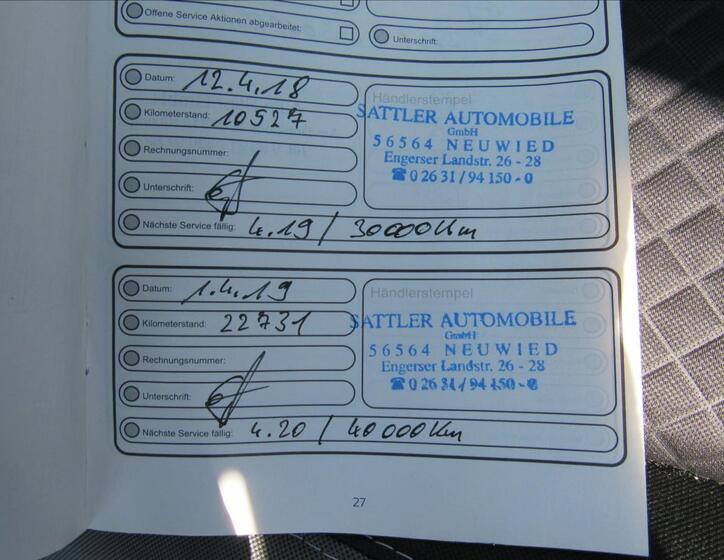 Offene Service Aktionen abgearbeitet:
Unterschrift:
Datum: 12.4.18
Kilometerstand: 10527
Rechnungsnummer:
Unterschrift:
Nächste Service fällig: 4.19 / 30000Km
Händlerstempel
SATTLER AUTOMOBILE
GmbH
56564 NEUWIED
Engerser Landstr. 26 - 28
☎ 0 26 31 / 94 150 - 0
Datum: 1.4.19
Kilometerstand: 22731
Rechnungsnummer:
Unterschrift:
Nächste Service fällig: 4.20 / 40000Km
Händlerstempel
SATTLER AUTOMOBILE
GmbH
56564 NEUWIED
Engerser Landstr. 26 - 28
☎ 0 26 31 / 94 150 - 0
27